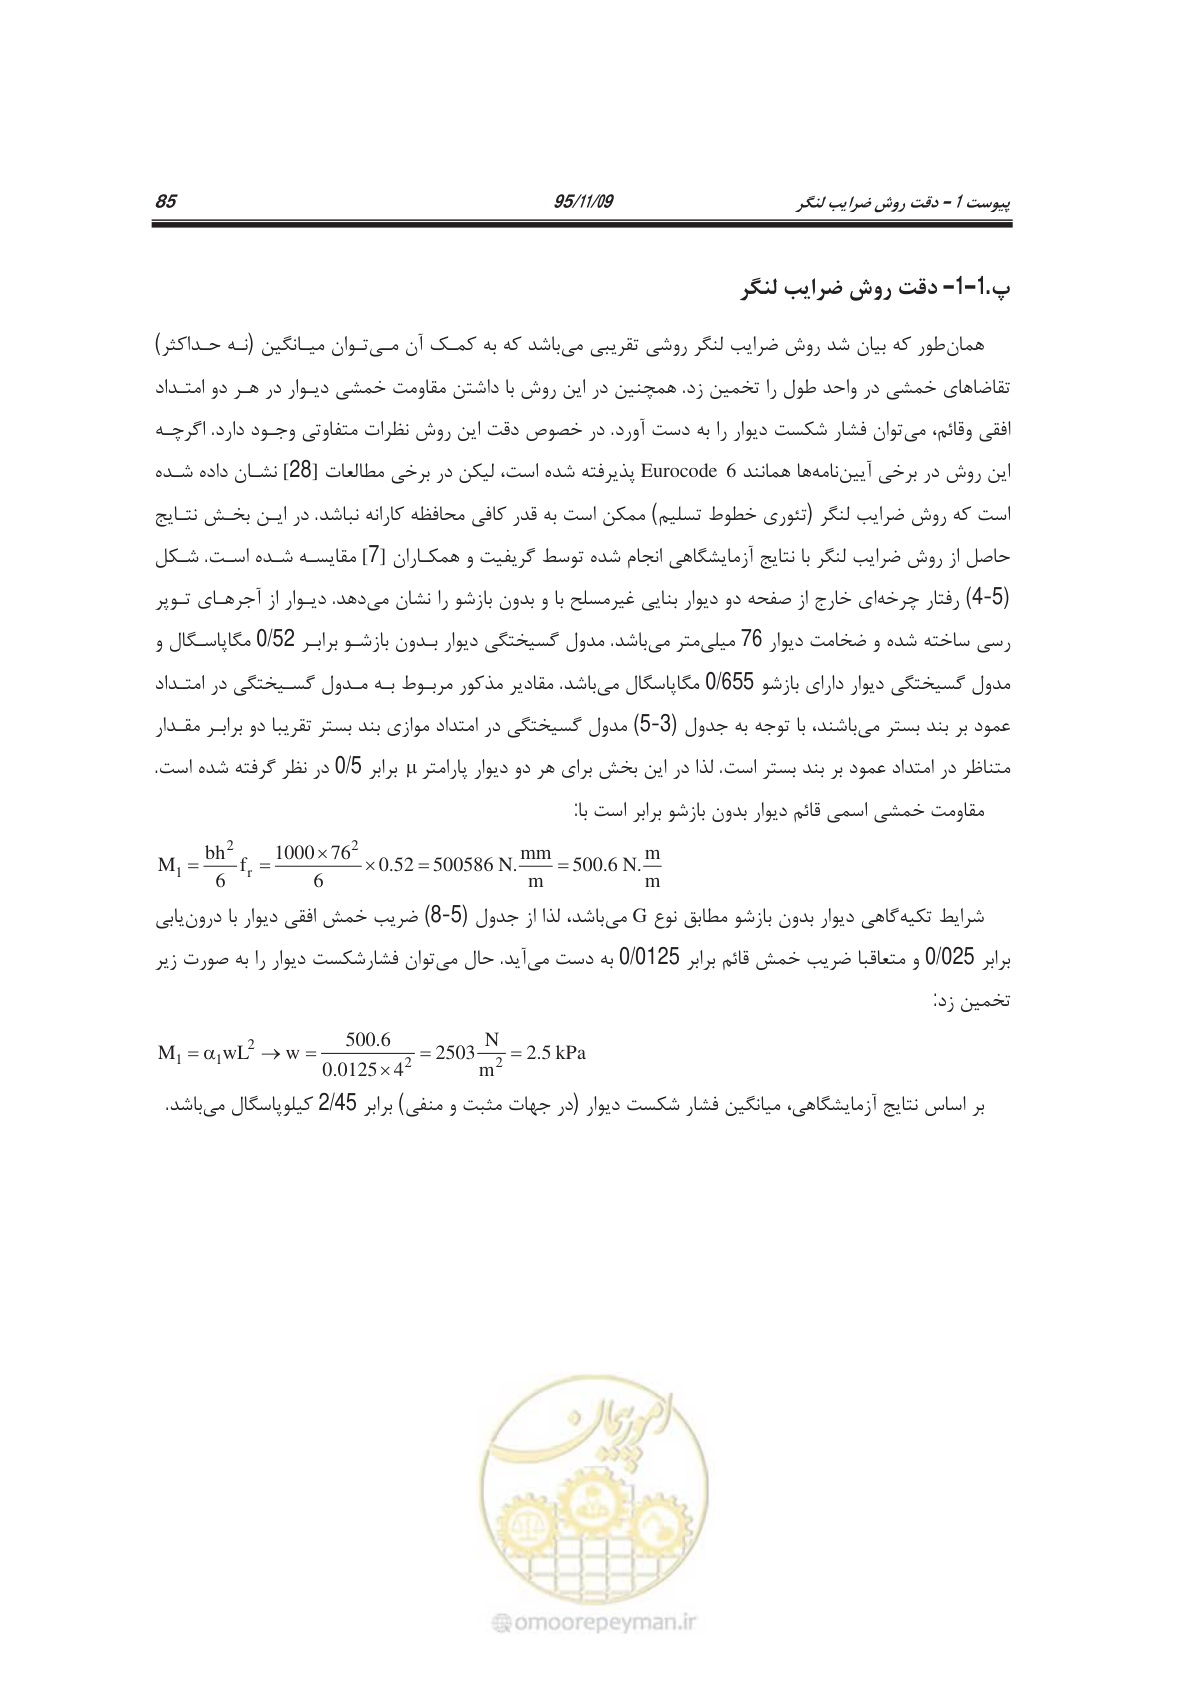 پیوست 1 – دقت روش ضرایب لنگر 95/11/09 85
پ.1-1- دقت روش ضرایب لنگر
همان‌طور که بیان شد روش ضرایب لنگر روشی تقریبی می‌باشد که به کمک آن می‌توان میانگین (نه حداکثر)
تقاضاهای خمشی در واحد طول را تخمین زد. همچنین در این روش با داشتن مقاومت خمشی دیوار در هر دو امتداد
افقی وقائم، می‌توان فشار شکست دیوار را به دست آورد. در خصوص دقت این روش نظرات متفاوتی وجود دارد. اگرچه
این روش در برخی آیین‌نامه‌ها همانند Eurocode 6 پذیرفته شده است، لیکن در برخی مطالعات [28] نشان داده شده
است که روش ضرایب لنگر (تئوری خطوط تسلیم) ممکن است به قدر کافی محافظه کارانه نباشد. در این بخش نتایج
حاصل از روش ضرایب لنگر با نتایج آزمایشگاهی انجام شده توسط گریفیت و همکاران [7] مقایسه شده است. شکل
(4-5) رفتار چرخه‌ای خارج از صفحه دو دیوار بنایی غیرمسلح با و بدون بازشو را نشان می‌دهد. دیوار از آجرهای توپر
رسی ساخته شده و ضخامت دیوار 76 میلی‌متر می‌باشد. مدول گسیختگی دیوار بدون بازشو برابر 0/52 مگاپاسگال و
مدول گسیختگی دیوار دارای بازشو 0/655 مگاپاسگال می‌باشد. مقادیر مذکور مربوط به مدول گسیختگی در امتداد
عمود بر بند بستر می‌باشند، با توجه به جدول (5-3) مدول گسیختگی در امتداد موازی بند بستر تقریبا دو برابر مقدار
متناظر در امتداد عمود بر بند بستر است. لذا در این بخش برای هر دو دیوار پارامتر μ برابر 0/5 در نظر گرفته شده است.
مقاومت خمشی اسمی قائم دیوار بدون بازشو برابر است با:
M₁ = bh²/6 fᵣ = 1000×76²/6 × 0.52 = 500586 N.mm/m = 500.6 N.m/m
شرایط تکیه‌گاهی دیوار بدون بازشو مطابق نوع G می‌باشد، لذا از جدول (8-5) ضریب خمش افقی دیوار با درون‌یابی
برابر 0/025 و متعاقبا ضریب خمش قائم برابر 0/0125 به دست می‌آید. حال می‌توان فشارشکست دیوار را به صورت زیر
تخمین زد:
M₁ = α₁wL² → w = 500.6/0.0125×4² = 2503 N/m² = 2.5 kPa
بر اساس نتایج آزمایشگاهی، میانگین فشار شکست دیوار (در جهات مثبت و منفی) برابر 2/45 کیلوپاسگال می‌باشد.
امور پیمان
@omoorepeyman.ir